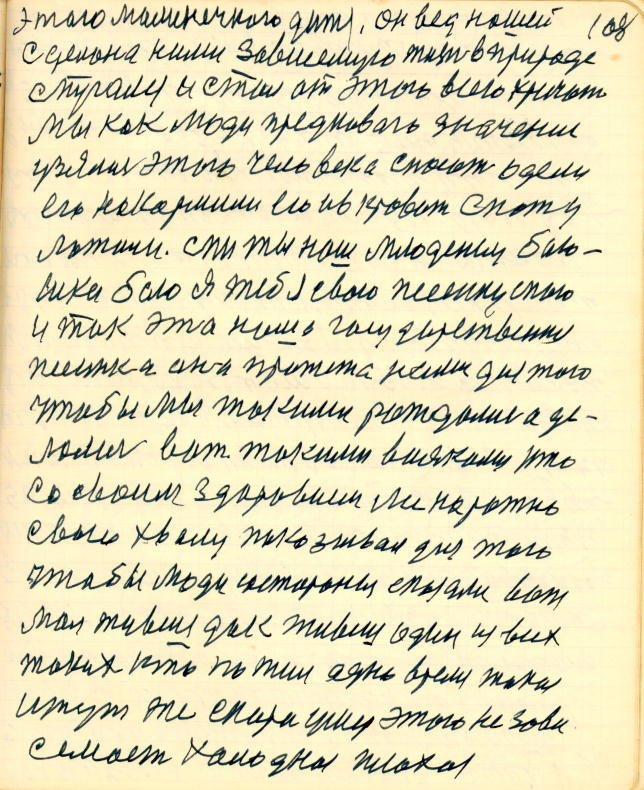 этого маминечкого дитя, он вед нашей 108
сделана ними Зависемую жизь в природе
спугалы и стал от этого всего кричать
Мы как люди предкового значения
узяли этого человека спасать одели
его накармили его в кровать спать у
ложили. спи ты наш младенец баю-
шки баю Я тебе свою песенку спою
и так эта наша государственна
песенка она пропета нами для того
чтобы мы такими рождалис а де-
лали вот такими всякому што
со своим здоровием Ли нарожно
свою хвалу показывал для того
чтобы люди состороны сказали вот
мол живеш дак живеш один из всех
таких кто пожил одно время такая
тут же скара умер этого не зави
семаст холодная плохая